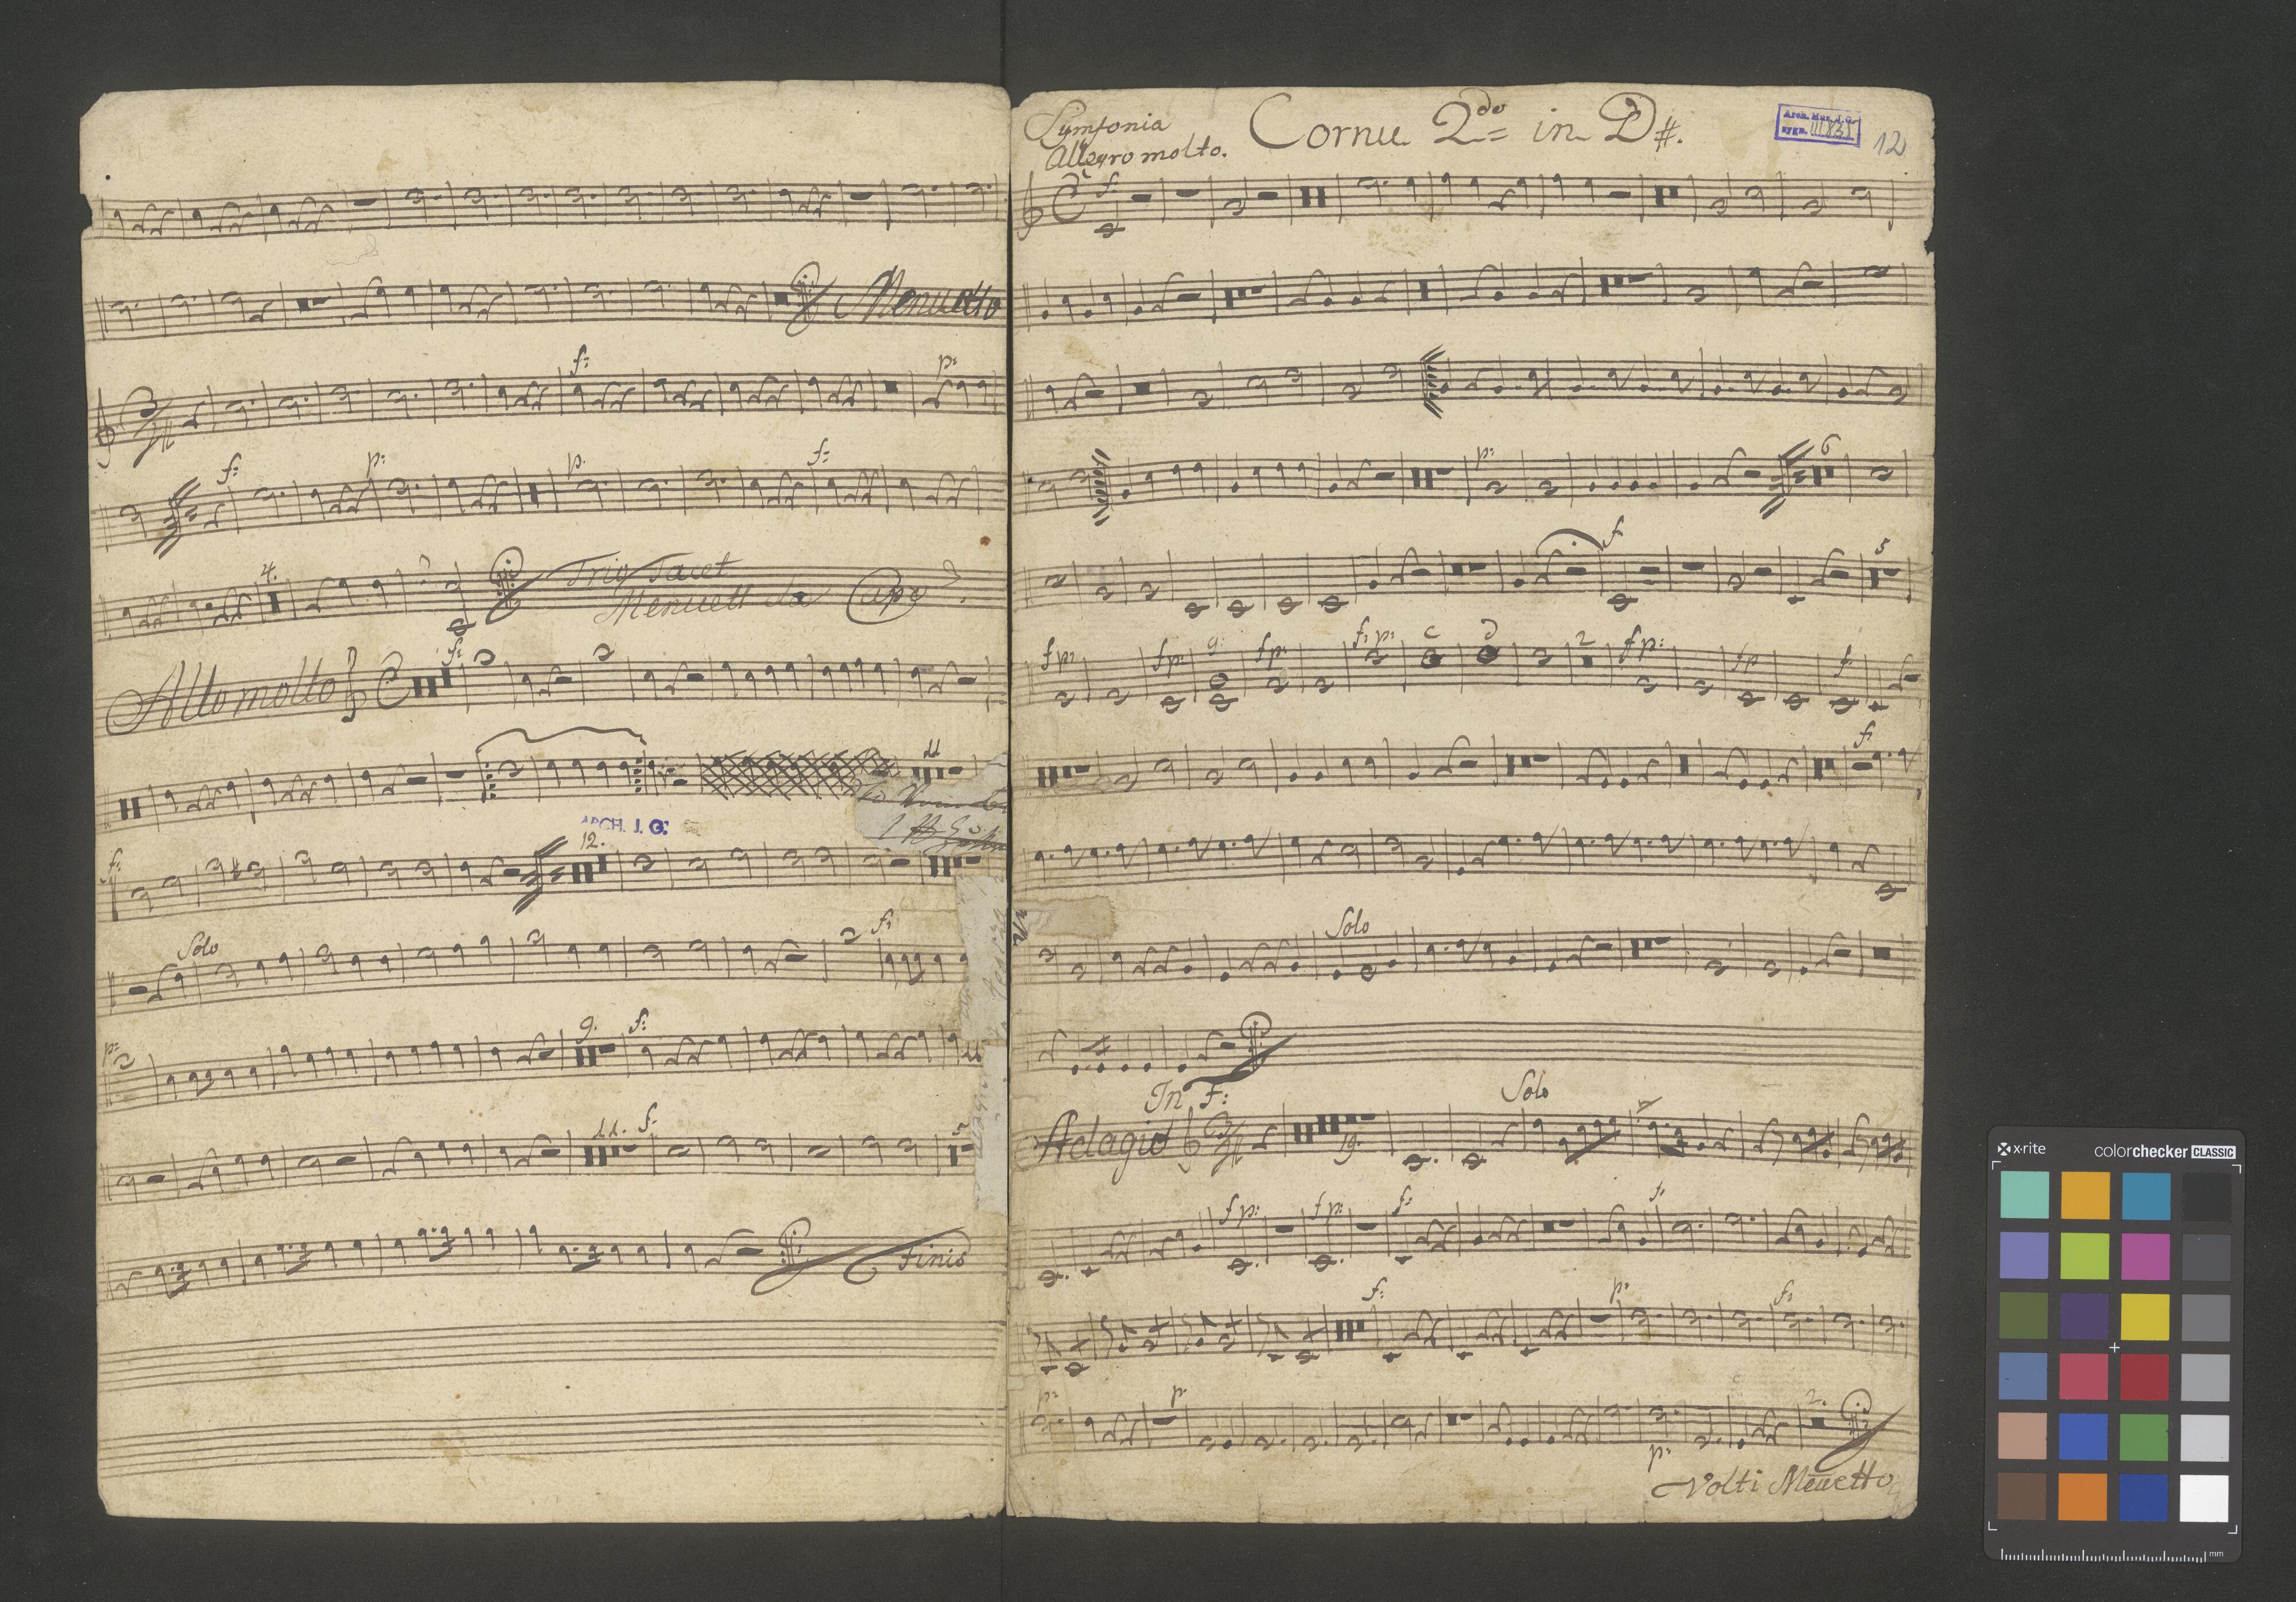 f:
p:
Menuetto
f:
p:
p.
f:
4.
Trio Tacet
Menuett da Capo
Allo molto
f:
11
ARCH. J. G.
f:
12.
Solo
f:
p:
9.
f:
11. f:
5
Finis
Symfonia
Allegro molto.
Cornu 2do in D#.
Arch. Mus. J. G.
sygn. III 831
12
f:
p:
6
f:
5
fp: fp: g: fp: f: p: c d 2 fp: fp f:
f:
Solo
In F:
Solo
Adagio
19.
fp: fp: f: f:
f: p: f:
p: p. 2.
p:
Volti Menuetto
x-rite
colorchecker CLASSIC
mm